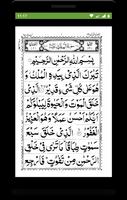 بِسْمِ اللهِ الرَّحْمٰنِ الرَّحِيْمِ
تَبٰرَكَ الَّذِيْ بِيَدِهِ الْمُلْكُ وَ
هُوَ عَلٰى كُلِّ شَيْءٍ قَدِيْرُ
الَّذِيْ خَلَقَ الْمَوْتَ وَالْحَيٰوةَ
لِيَبْلُوَكُمْ اَيُّكُمْ اَحْسَنُ عَمَلًا
وَهُوَ الْعَزِيْزُ الْغَفُوْرُ الَّذِيْ
خَلَقَ سَبْعَ سَمٰوٰتٍ طِبَاقًا
مَا تَرٰى فِيْ خَلْقِ الرَّحْمٰنِ
مِنْ تَفٰوُتٍ فَارْجِعِ